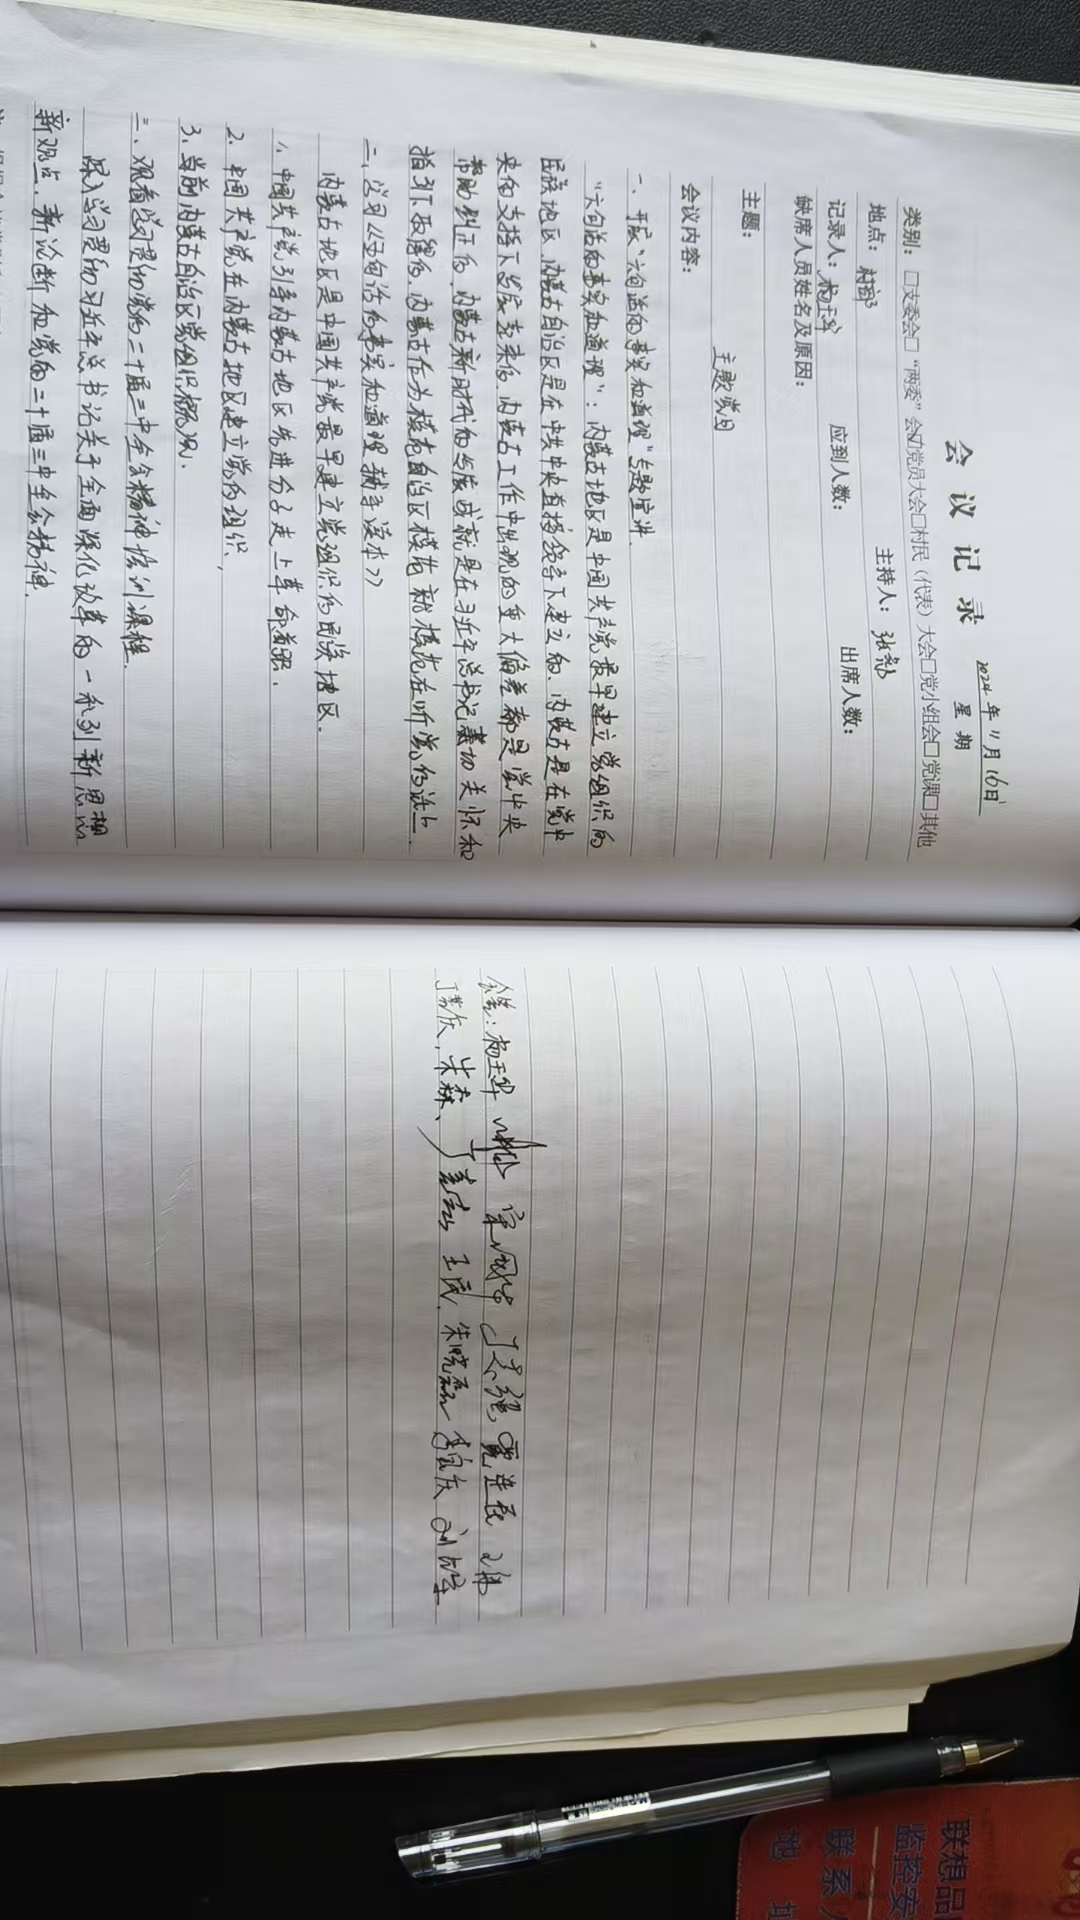 会 议 记 录
2024年11月16日
星 期
类别：□支委会□“两委”会☑党员大会□村民（代表）大会□党小组会□党课□其他
地点：村部 主持人：
记录人：杨玉军 应到人数： 出席人数：
缺席人员姓名及原因：
主题：
主题党日
会议内容：
一、开展“六句话的事实和道理”专题宣讲.
“六句话的事实和道理”：内蒙古地区是中国共产党最早建立党组织的
民族地区、内蒙古自治区是在中共中央直接领导下建立的、内蒙古是在党中
央的支持下发展起来的、内蒙古工作中出现的重大偏差都是党中央
帮助纠正的、内蒙古新时代的发展成就是在习近平总书记亲切关怀和
指引下取得的、内蒙古作为模范自治区模范就模范在听党的话上.
二、学习《六句话的事实和道理辅导读本》
内蒙古地区是中国共产党最早建立党组织的民族地区.
1、中国共产党引导内蒙古地区先进分子走上革命道路.
2、中国共产党在内蒙古地区建立党的组织.
3、当前内蒙古自治区党组织概况.
三、观看学习贯彻党的二十届三中全会精神培训课程.
深入学习贯彻习近平总书记关于全面深化改革的一系列新思想
新观点、新论断和党的二十届三中全会精神.
签：杨玉军 丁志强 王伟
朱森、 王民 朱晓磊 刘
联想品
监控安
联系人
地 址